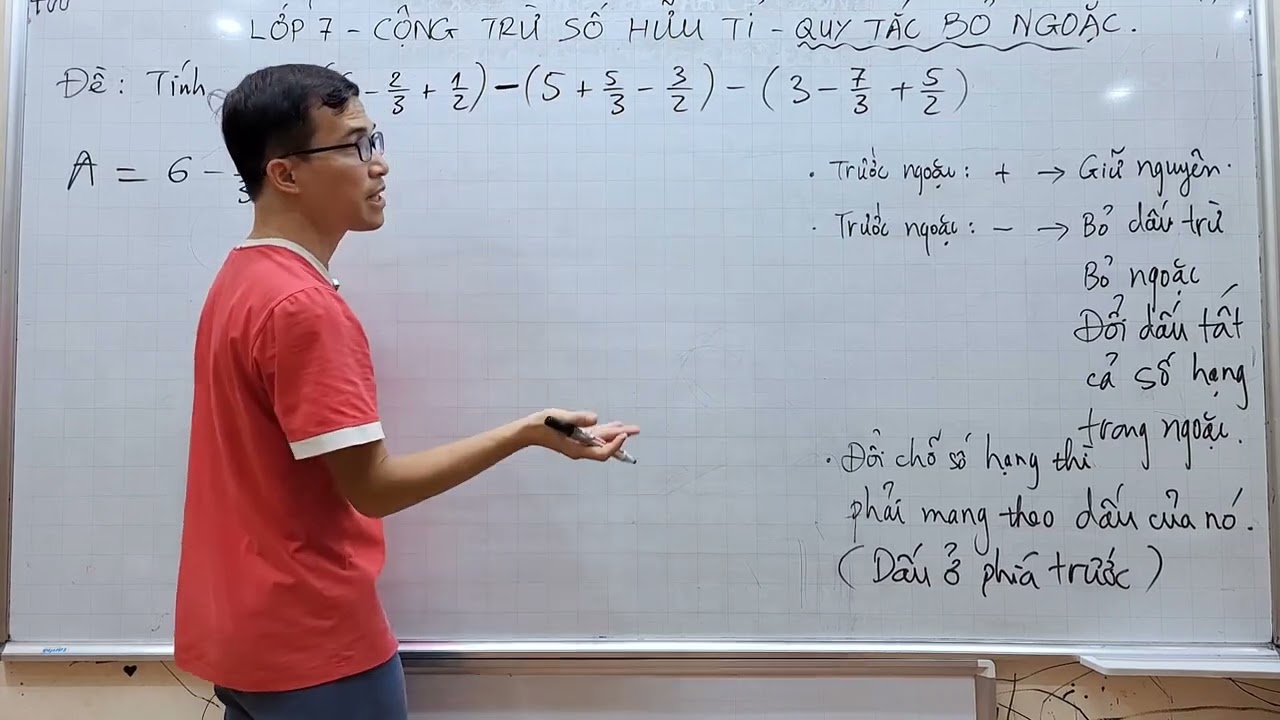 LỚP 7 - CỘNG TRỪ SỐ HỮU TỈ - QUY TẮC BỎ NGOẶC.
Đề: Tính - 2/3 + 1/2) - (5 + 5/3 - 3/2) - (3 - 7/3 + 5/2)
A = 6 -
· Trước ngoặc: + → Giữ nguyên.
· Trước ngoặc: - → Bỏ dấu trừ
Bỏ ngoặc
Đổi dấu tất
cả số hạng
trong ngoặc.
· Đổi chỗ số hạng thì
phải mang theo dấu của nó.
(Dấu ở phía trước)